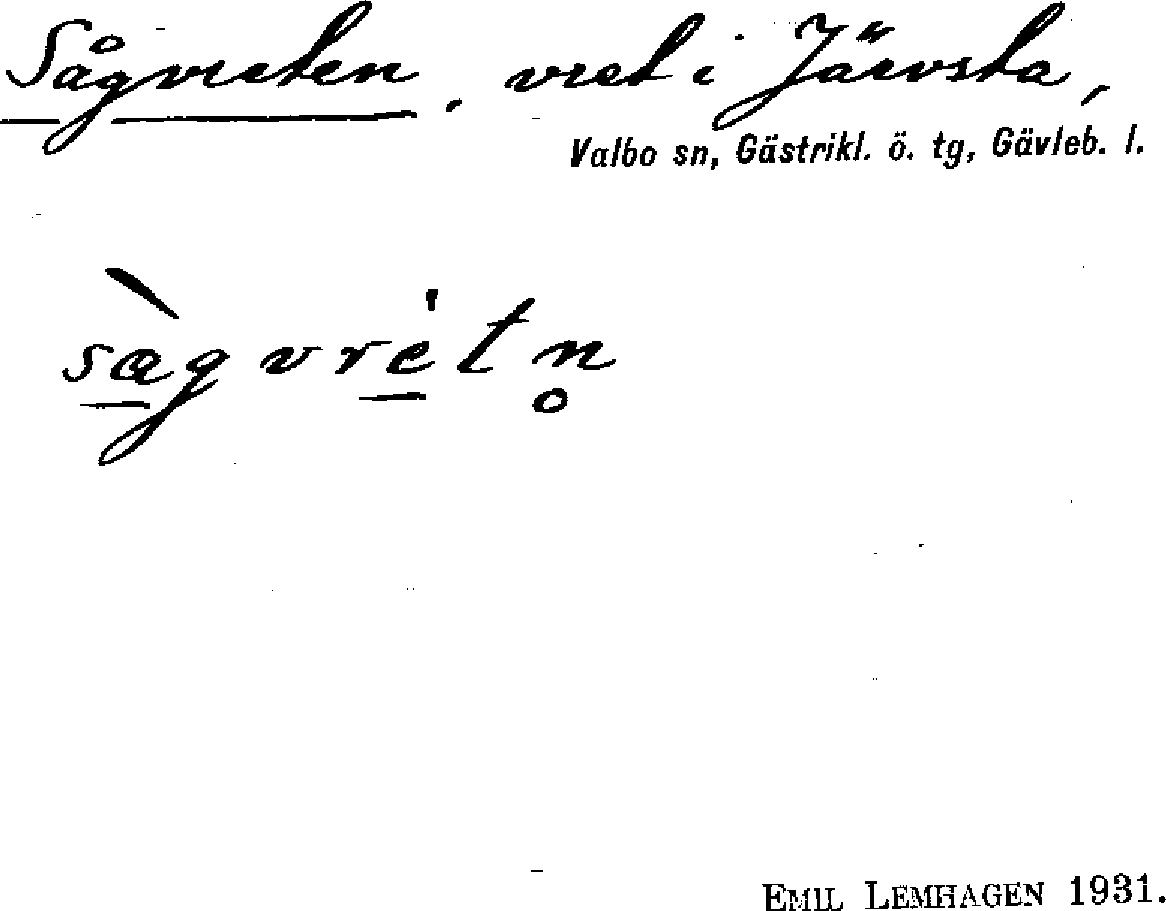 Sågvreten, vret i Järvsta,
Valbo sn, Gästrikl. ö. tg, Gävleb. l.
sæ̠̀gvre̠̍tn̥
EMIL LEMHAGEN 1931.